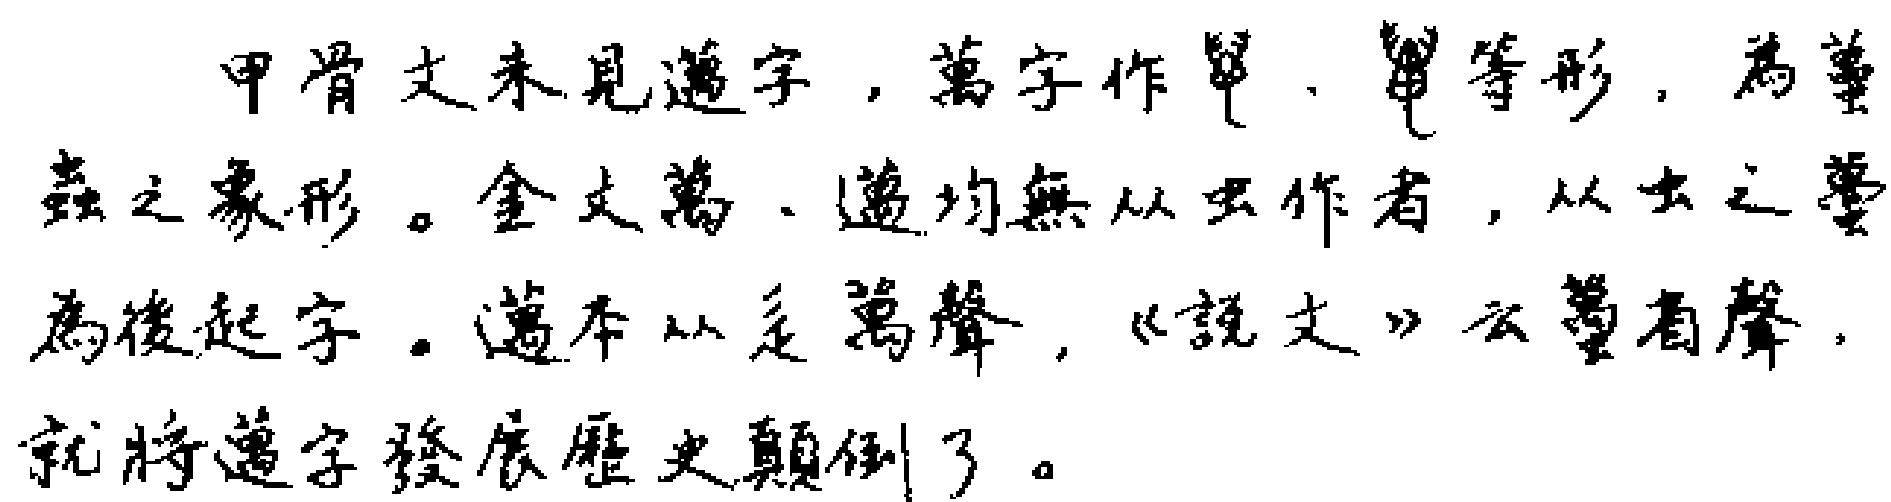 甲骨文未見邁字，萬字作、等形，為蠆
蟲之象形。金文萬、邁均無从虫作者，从虫之蠆
為後起字。邁本从辵萬聲，《說文》云蠆省聲，
就將邁字發展歷史顛倒了。